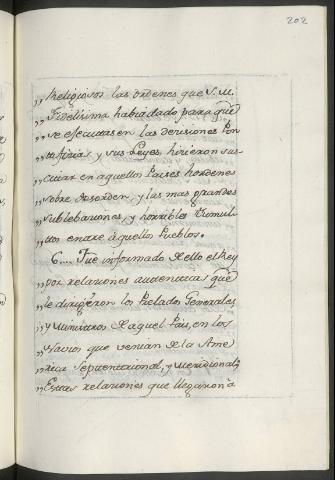 202
„ Religiosos las ordenes que S. M.
„ Fidelisima habia dado para que
„ se efectuasen las decisiones Pon
„ tificias, y sus Leyes hicieron sus
„ citar en aquellos Paises hordenes
„ sobre desorden, y las mas grandes
„ sublebaciones, y horribles tumul
„ tos entre aquellos Pueblos.
6.... Fue informado de ello el Rey
„ por relaciones autenticas que
„ le dirigieron los Prelados Generales,
„ y Ministros de aquel Pais, en los
„ Navios que venian de la Ame
„ rica Septentrional, y Meridional;
„ Estas relaciones que llegaron à